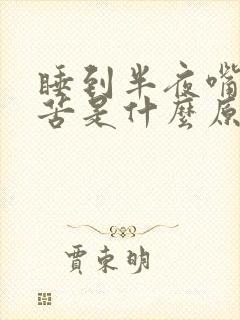 睡到半夜嘴
苦是什麼原
賈東明